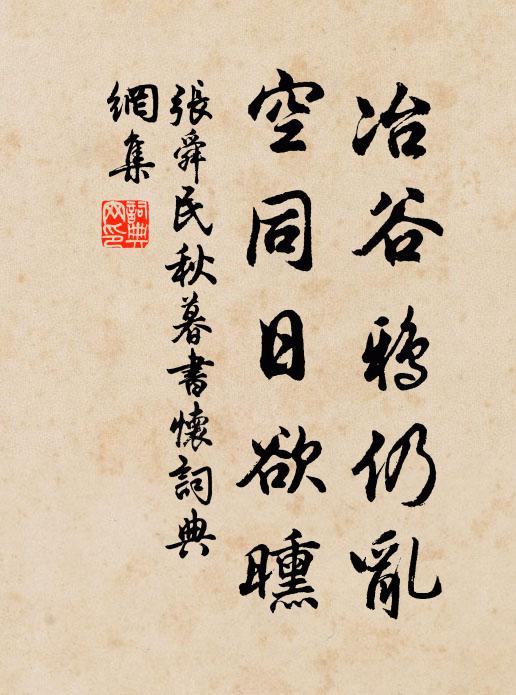 冶谷鴉仍亂
空同日欲曛
張舜民秋暮書懷詞典
網集
詞典
网印